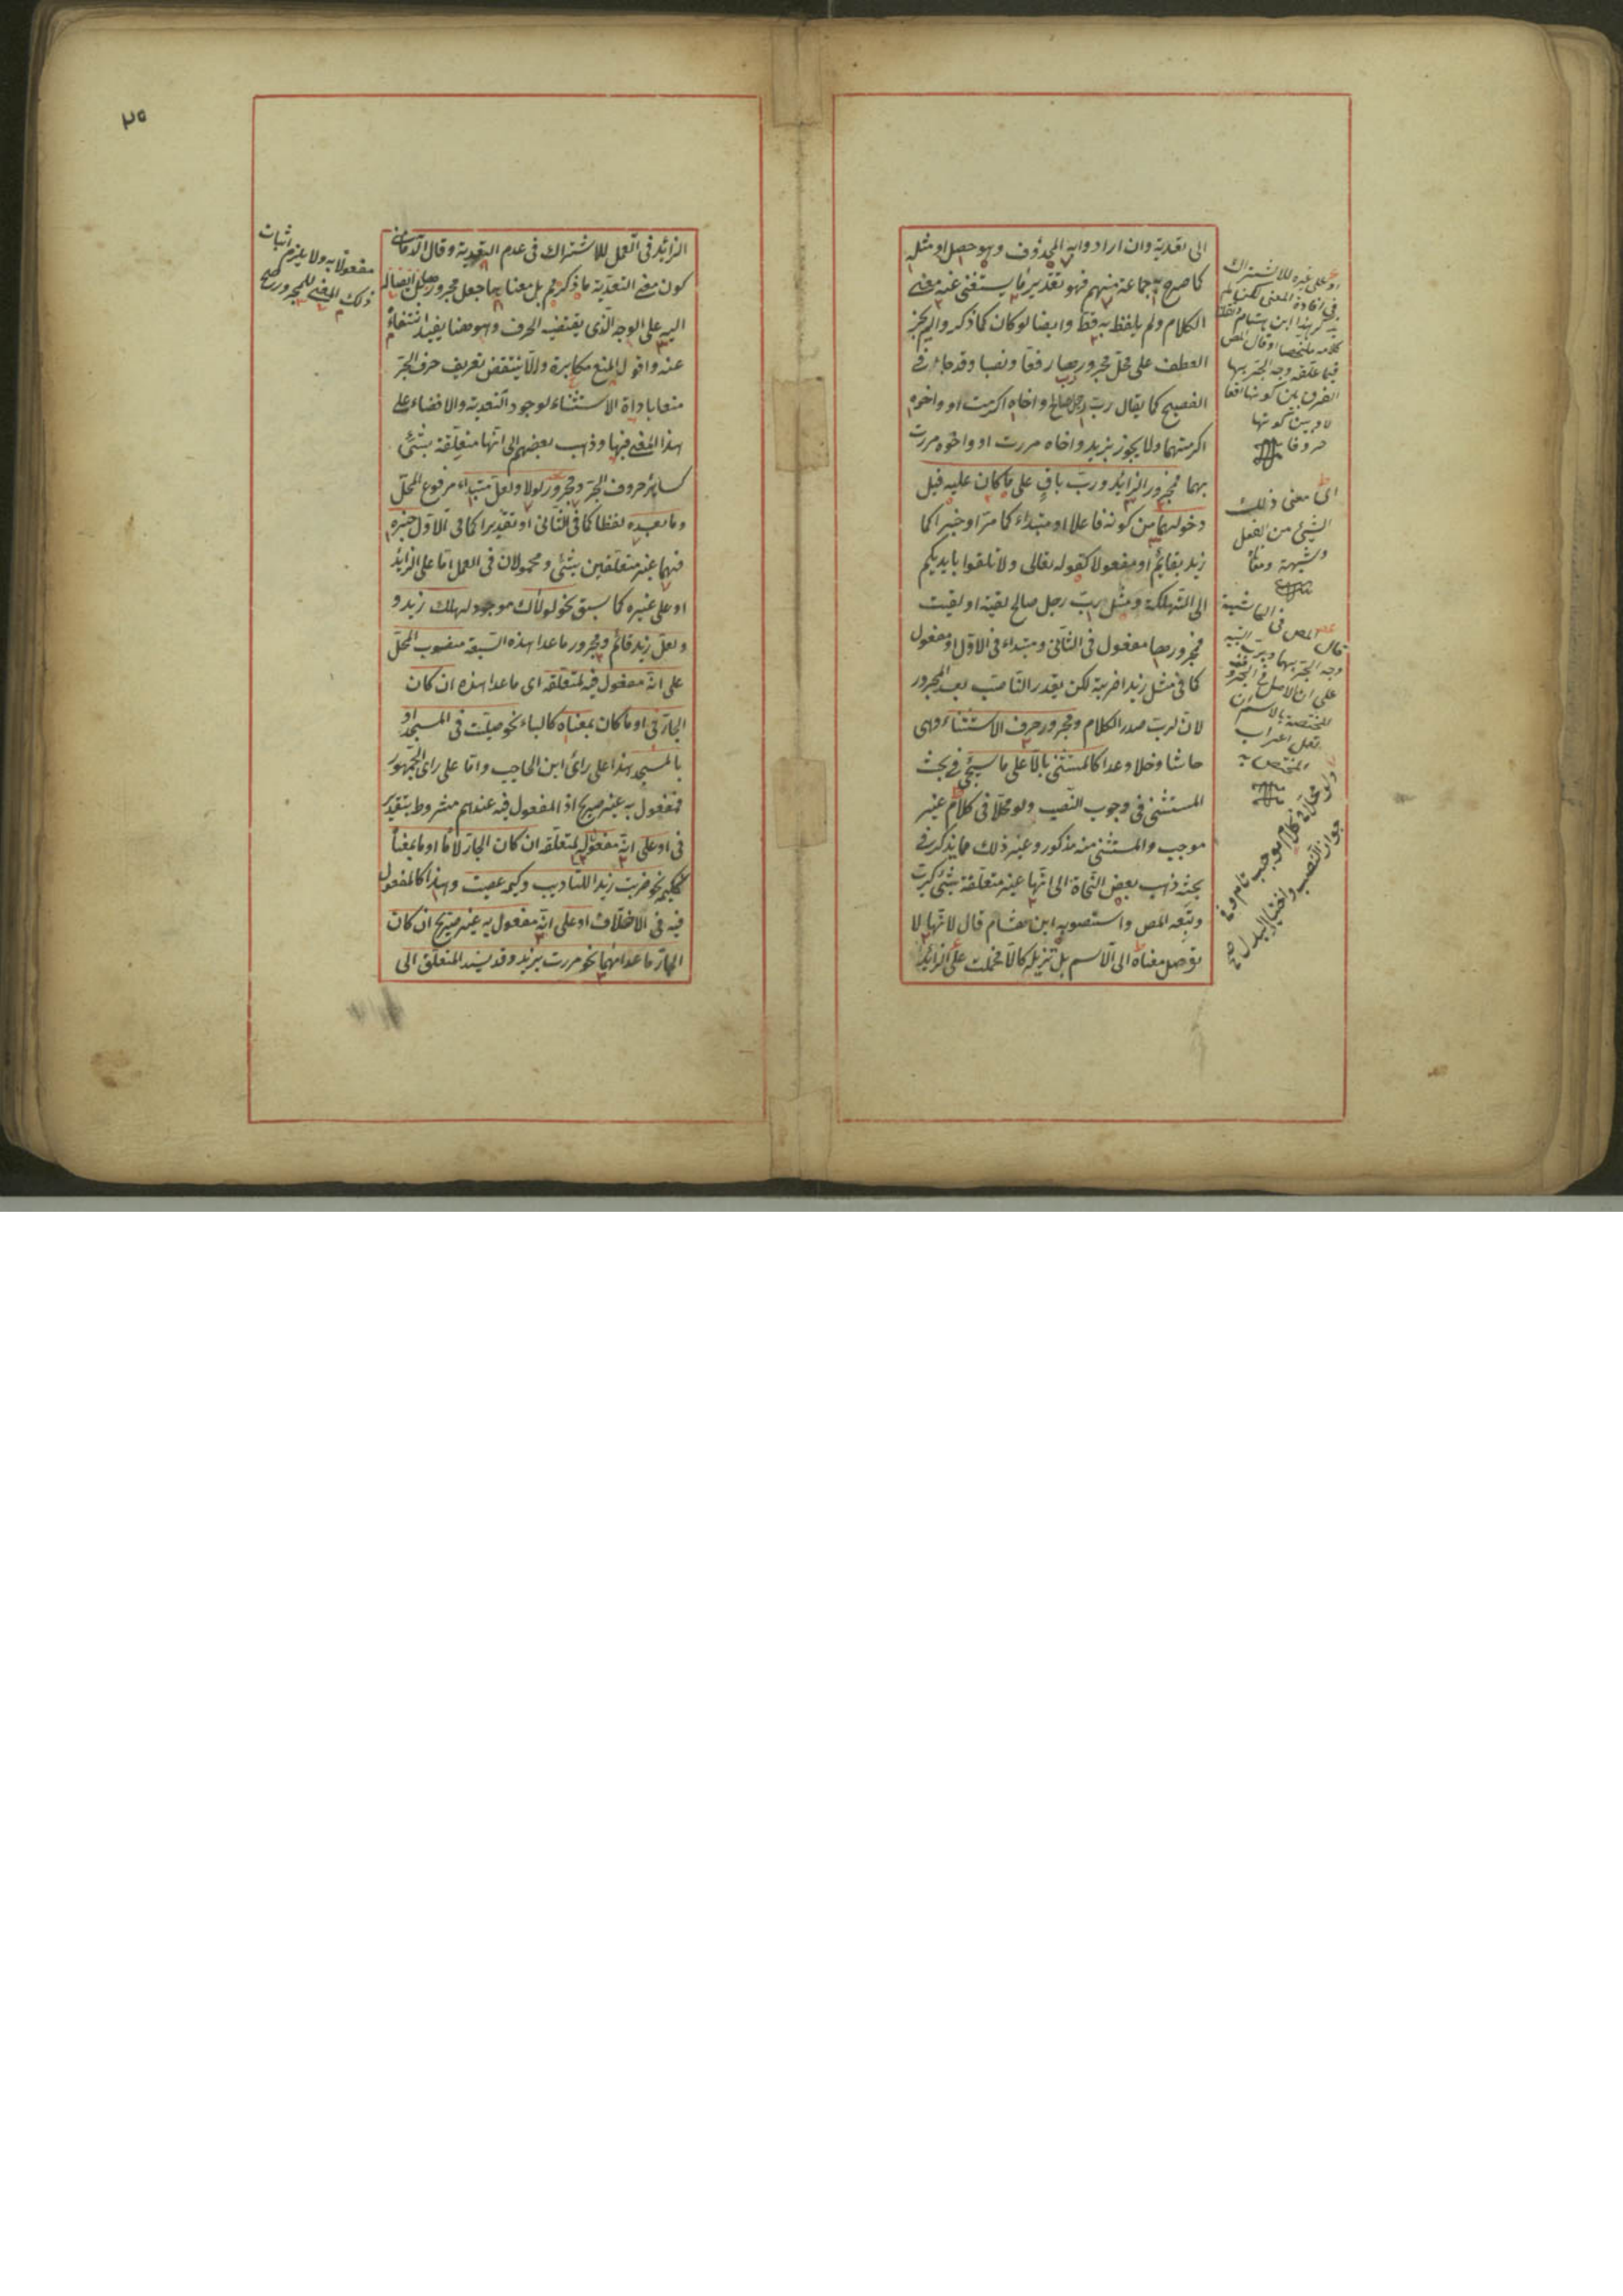 الى تعدية وان ارادوا به المحذوف وهو حصل او مثله
كما صرح به جماعة منهم فهو تقدير ما يستغنى عنه معنى
الكلام ولم يلفظ به قط وايضا لو كان كما ذكروا لم يجز
العطف على محل مجرورها رفعا ونصبا وقد جاء في
الفصيح كما يقال رب رجل صالح واخاه اكرمت او واخوه
اكرمتهما ولا يجوز بزيد واخاه مررت او واخوه مررت
بهما فمجرور الزائد ورب باق على ما كان عليه قبل
دخولهما من كونه فاعلا او مبتداء كما مر او خبرا كما
زيد بقائم او مفعولا كقوله تعالى ولا تلقوا بايديكم
الى التهلكة ومثل رب رجل صالح لقيته او لقيت
فمجرورها مفعول في الثاني ومبتداء في الاول او مفعول
كما في مثل زيدا ضربته لكن يقدر الناصب بعد المجرور
لان لرب صدر الكلام ومجرور حرف الاستثناء وهي
حاشا وخلا وعدا كالمستثنى بالا على ما سيجئ في بحث
المستثنى في وجوب النصب ولو محلا في كلام غير
موجب والمستثنى منه مذكور وغير ذلك مما يذكر في
بحثه ذهب بعض النحاة الى انها غير متعلقة بشئ كرب
وتبعه المص واستصوبه ابن هشام قال لانها لا
توصل معناه الى الاسم بل تزيله كالا فحملت على الزائد
او على غيره للاشتراك
في افادة المعنى لكن لم
يذكر هذا ابن هشام
كلامه ملخصا وقال المص
فيما علقه وجه الجر بها
الفرق بين كونها افعا
لا وبين كونها
حروفا
اى معنى ذلك
الشئ من الفعل
وشبهه ومعناه
قال المص في الحاشية
وجه الجر بها
على ان الاصل في الحروف
المختصة بالاسم ان
تعمل اعراب
المختص به
ولو محلا في كلام موجب تام وفي
جواز النصب واختيار البدل
٢٥
الزائد في العمل للاشتراك في عدم التعدية وقال الدماميني
كون معنى التعدية ما ذكرتم بل معناها جعل مجرور
اليه على الوجه الذي يقتضيه الحرف وهو هنا يفيد انتفاءه
عنه واقول المنع مكابرة والا ينتقض تعريف حرف الجر
منعا باداة الاستثناء لوجود التعدية والافضاء على
هذا المعنى فيها وذهب بعضهم الى انها متعلقة بشئ
كسائر حروف الجر ومجرور لولا ولعل مبتداء مرفوع المحل
وما بعده لفظا كما في الثاني او تقديرا كما في الاول خبره
فهما غير متعلقين بشئ ومحمولان في العمل اما على الزائد
او على غيره كما سبق نحو لولاك موجود لهلك زيد و
ولعل زيد قائم ومجرور ما عدا هذه السبعة منصوب المحل
على انه مفعول فيه لمتعلقه اى ما عدا هذه ان كان
الجار في او ما كان بمعناه كالباء نحو صليت في المسجد او
بالمسجد هذا على راى ابن الحاجب واما على راى الجمهور
فمفعول به غير صريح اذ المفعول فيه عندهم مشروط بتقدير
في او على انه مفعول له لمتعلقه ان كان الجار لاما او ما بمعناه
ككيمه نحو ضربت زيدا للتاديب وكيمه عصيت وهذا كالمفعول
فيه في الاختلاف او على انه مفعول به غير صريح ان كان
الجار ما عداهما نحو مررت بزيد وقد يسند المتعلق الى
مفعولا به ولا يلزم اثبات
ذلك المعنى للمجرور صح